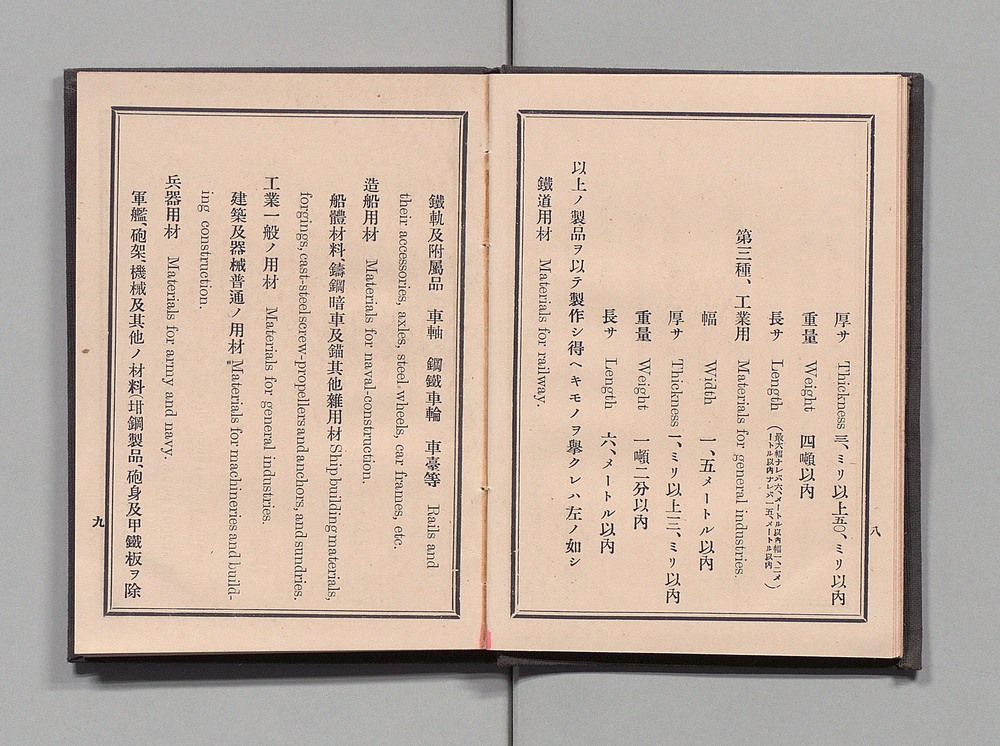 厚サ Thickness 三、ミリ以上五〇、ミリ以內
重量 Weight 四噸以內
長サ Length (最大幅ナレバ六、メートル以內幅一、二メートル以內ナレバ一五、メートル以內)
第三種、工業用 Materials for general industries.
幅 Width 一、五メートル以內
厚サ Thickness 一、ミリ以上三、ミリ以內
重量 Weight 一噸二分以內
長サ Length 六、メートル以內
以上ノ製品ヲ以テ製作シ得ヘキモノヲ擧クレハ左ノ如シ
鐵道用材 Materials for railway.
八
鐵軌及附屬品 車軸 鋼鐵車輪 車臺等 Rails and
their accessories, axles, steel wheels, car frames, etc.
造船用材 Materials for naval-construction.
船體材料、鑄鋼暗車及錨其他雜用材 Ship building materials,
forgings, cast-steel screw-propellers and anchors, and sundries.
工業一般ノ用材 Materials for general industries.
建築及器械普通ノ用材 Materials for machineries and build-
ing construction.
兵器用材 Materials for army and navy.
軍艦、砲架、機械及其他ノ材料(坩鋼製品、砲身及甲鐵板ヲ除
九